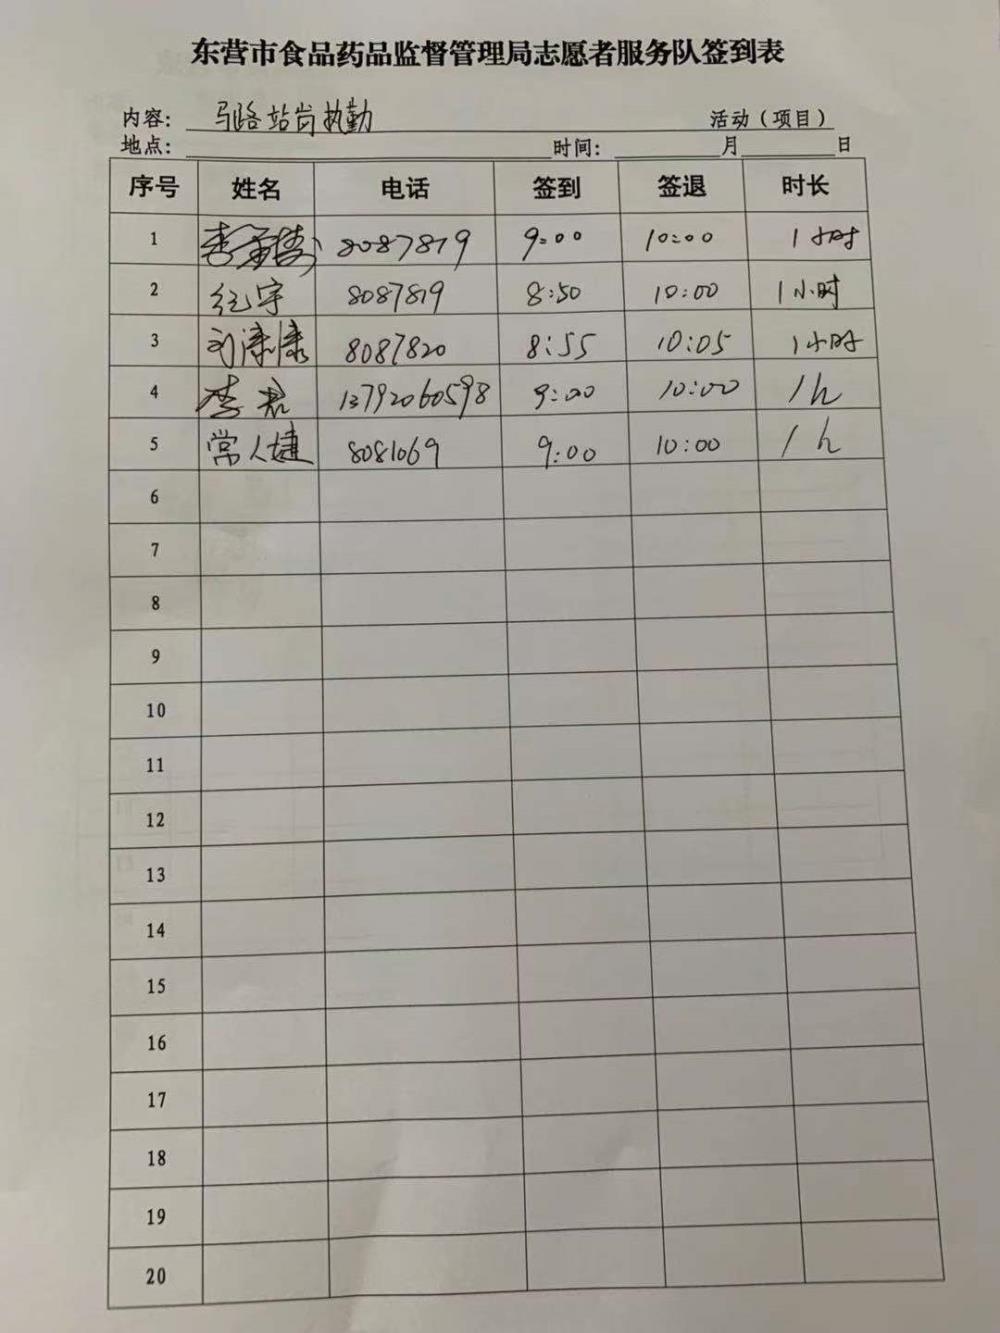 东营市食品药品监督管理局志愿者服务队签到表
内容: 马路站岗执勤 活动(项目)
地点: 时间: 月 日
序号 姓名 电话 签到 签退 时长
1 李 8087819 9:00 10:00 1小时
2 纪宇 8087819 8:50 10:00 1小时
3 刘潇潇 8087820 8:55 10:05 1小时
4 李君 13792060598 9:00 10:00 1h
5 常人婕 8081069 9:00 10:00 1h
6
7
8
9
10
11
12
13
14
15
16
17
18
19
20